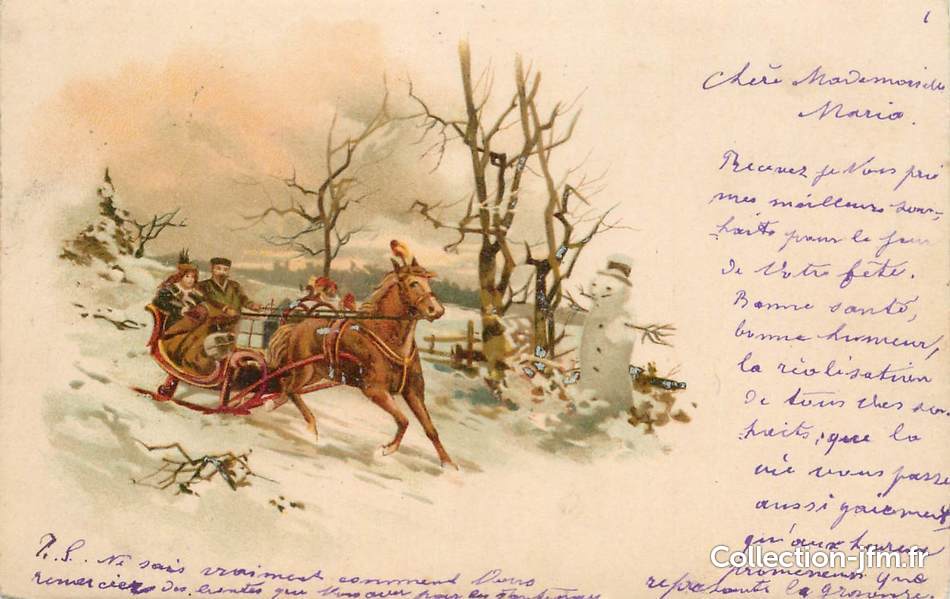 Chère Mademoiselle
Maria.
Recevez je Vous prie
mes meilleurs sou-
haits pour le jour
de Votre fête.
Bonne santé,
bonne humeur,
la réalisation
de tous vos sou-
haits, que la
vie vous passe
aussi gaiement
qu'aux heureux
promeneurs que
représente la
P.S. Ne sais vraiment comment Vous
remercier des que Vous avez pour les
Collection-jfm.fr